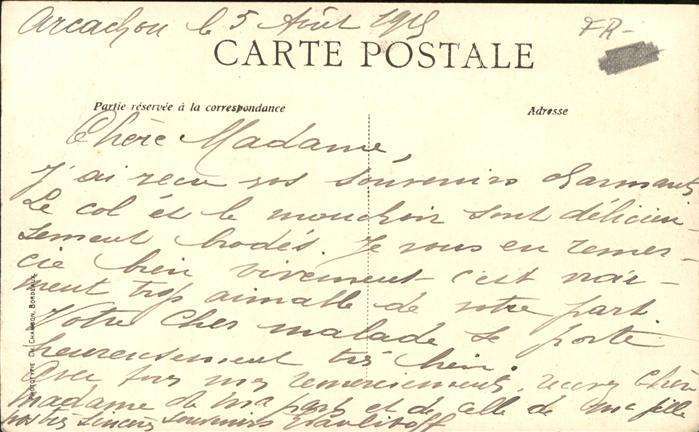 Arcachon le 5 Août 1915
FR-
CARTE POSTALE
Partie réservée à la correspondance
Adresse
Chère Madame,
J'ai reçu vos souvenirs charmants
Le col et le mouchoir sont délicieu-
sement brodés. Je vous en remer-
cie bien vivement c'est vrai-
ment trop aimable de votre part
Votre cher malade se porte
heureusement très bien.
Avec tous mes remerciements, recevez chère
Madame de ma part et de celle de ma fille
nos très sincères souvenirs
PHOTOTYPIE CH. CHAMBON, BORDEAUX